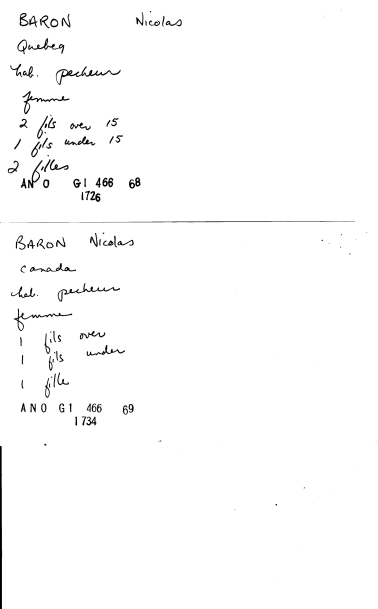 BARON Nicolas
Quebeq
hab. pecheur
femme
2 fils over 15
1 fils under 15
2 filles
AN O G1 466 68
1726
BARON Nicolas
Canada
hab. pecheur
femme
1 fils over
1 fils under
1 fille
A N O G1 466 69
1734